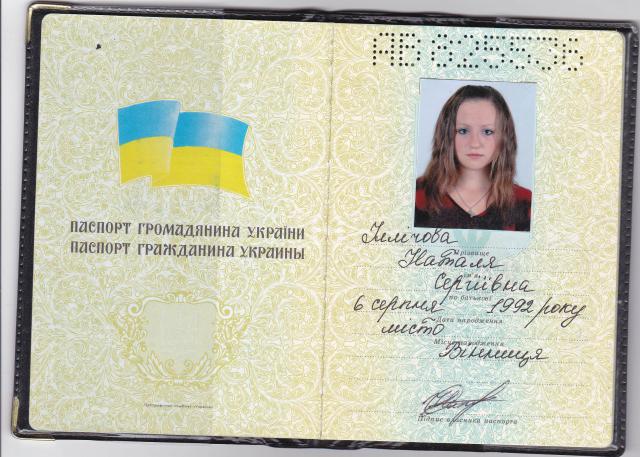 АВ 525536
ПАСПОРТ ГРОМАДЯНИНА УКРАЇНИ
ПАСПОРТ ГРАЖДАНИНА УКРАИНЫ
Прізвище
Наталя
Сергіївна
по батькові
6 серпня 1992 року
Дата народження
місто
Місце народження
Вінниця
Підпис власника паспорта